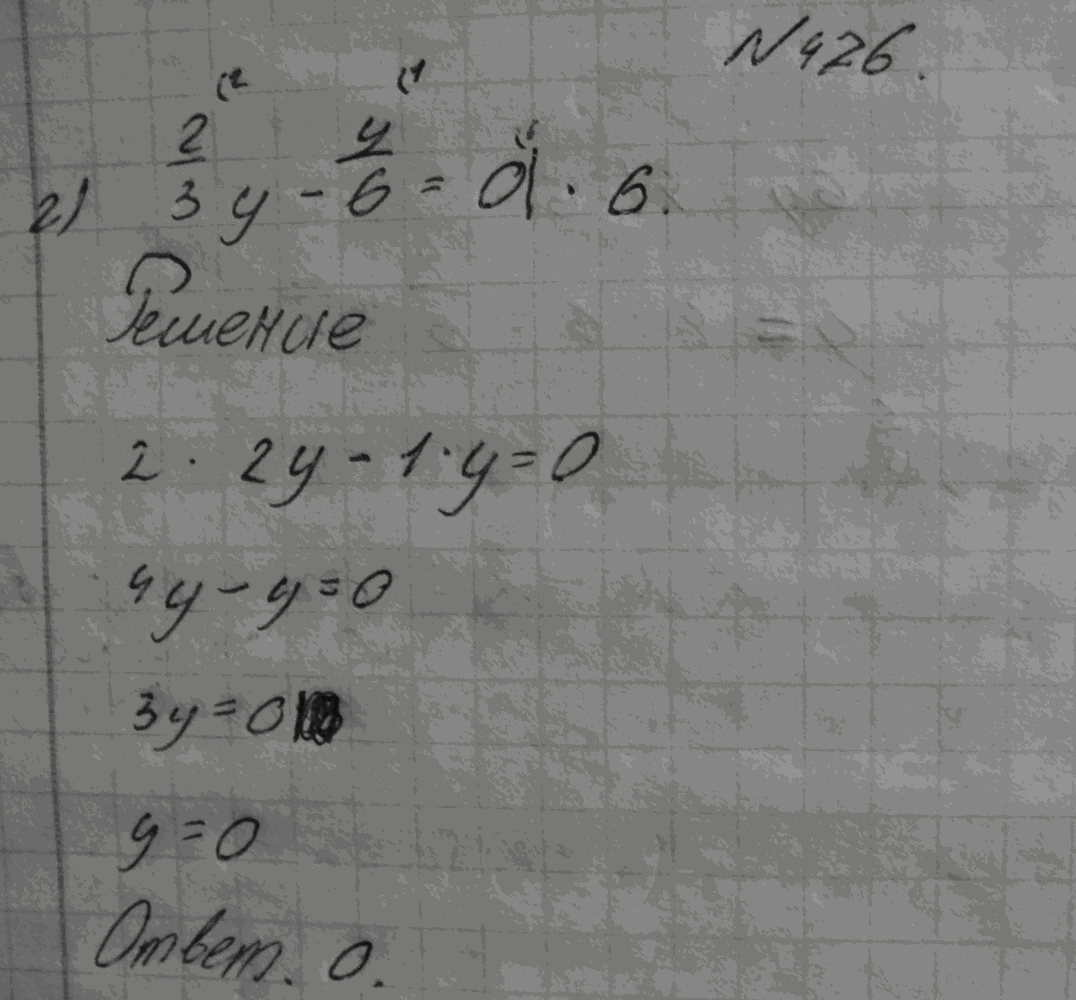 N 426.
г) 2/3 y - y/6 = 0 | · 6.
Решение
2 · 2y - 1 · y = 0
4y - y = 0
3y = 0
y = 0
Ответ. 0.